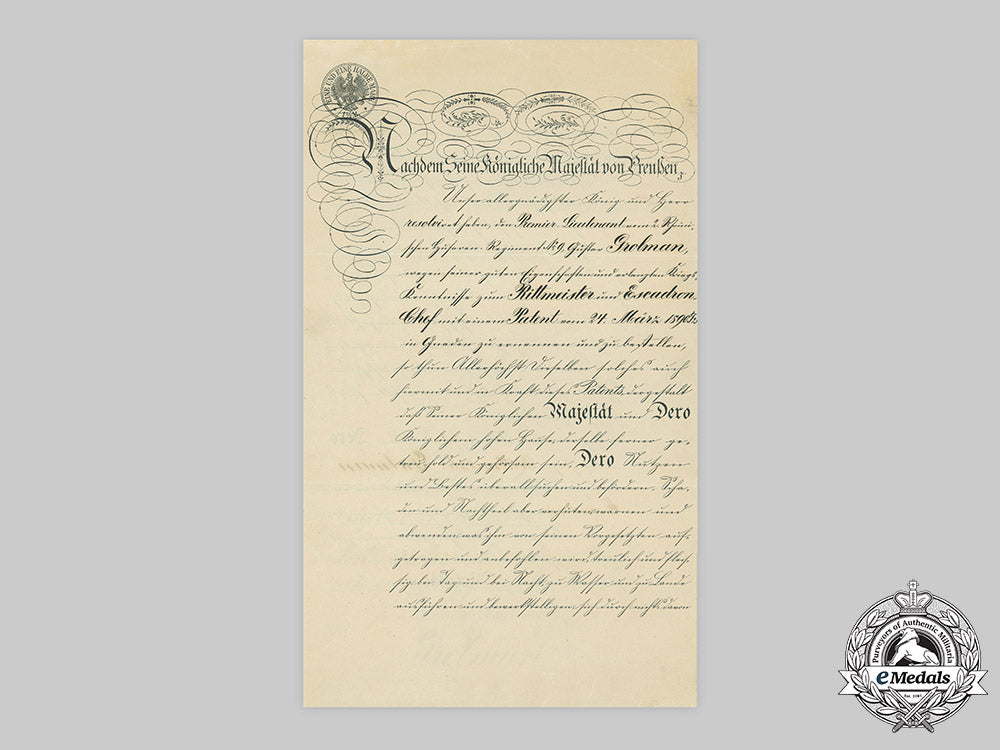 EINE UND EINE HALBE MARK
Nachdem Seine Königliche Majestät von Preußen,
Unser allergnädigster König und Herr
resolviret haben, den Premier-Lieutenant vom 2. Rheini-
schen Husaren-Regiment No 9 Grolman,
wegen seiner guten Eigenschaften und erlangten Kriegs-
Kenntnisse zum Rittmeister und Escadron-
Chef mit einem Patent vom 24. März
in Gnaden zu ernennen und zu bestellen,
so thun Allerhöchst Dieselben solches auch
hiermit und in Kraft dieses Patents, dergestalt
daß Seiner Königlichen Majestät und Dero
Königlichem hohen Hause, derselbe ferner ge-
treu, hold und gehorsam sein, Dero Nutzen
und Bestes überall suchen und befördern, Scha-
den und Nachtheil aber verhüten, warnen und
abwenden, was ihm von seinen Vorgesetzten auf-
getragen und anbefohlen wird, treulich und fleis-
sig bei Tag und bei Nacht, zu Wasser und zu Lande
ausführen und bewerkstelligen, sich durch nichts davon
Purveyors of Authentic Militaria
eMedals